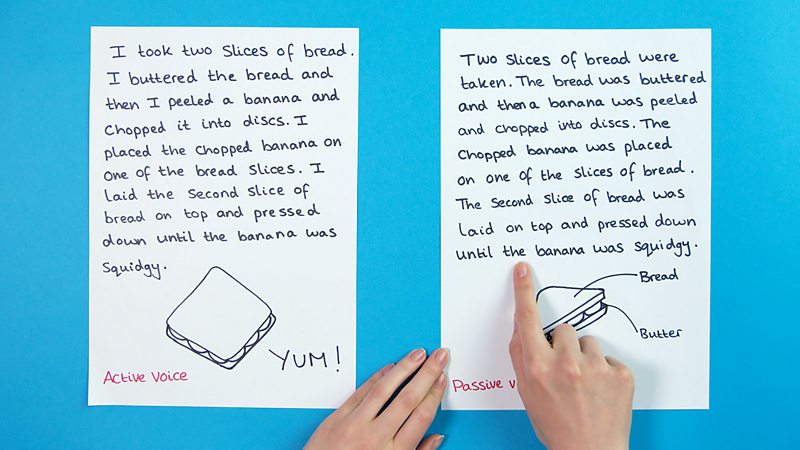 I took two slices of bread.
I buttered the bread and
then I peeled a banana and
chopped it into discs. I
placed the chopped banana on
one of the bread slices. I
laid the second slice of
bread on top and pressed
down until the banana was
squidgy.
YUM!
Active voice
Two slices of bread were
taken. The bread was buttered
and then a banana was peeled
and chopped into discs. The
chopped banana was placed
on one of the slices of bread.
The second slice of bread was
laid on top and pressed down
until the banana was squidgy.
Bread
Butter
Passive